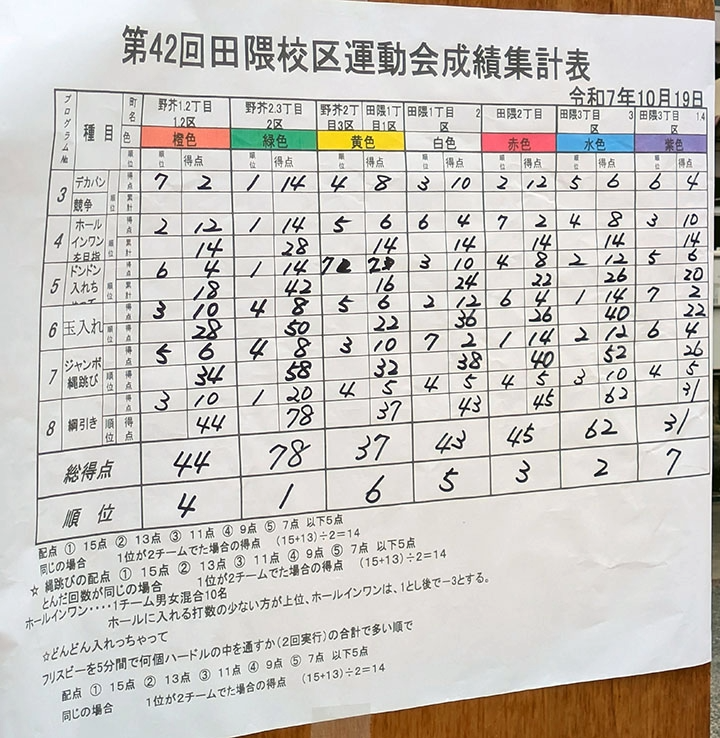 第42回田隈校区運動会成績集計表
令和7年10月19日
プログラム№ 種目 町名 野芥1.2丁目1.2区 野芥2.3丁目2区 野芥2丁目3区 田隈1丁目1区 田隈1丁目2区 田隈2丁目 田隈3丁目3区 田隈3丁目1,4区
色 橙色 緑色 黄色 白色 赤色 水色 紫色
順位 得点 順位 得点 順位 得点 順位 得点 順位 得点 順位 得点 順位 得点
3 デカパン競争 得点 7 2 1 14 4 8 3 10 2 12 5 6 6 4
順位 累計
4 ホールインワンを目指 得点 2 12 1 14 5 6 6 4 7 2 4 8 3 10
順位 累計 14 28 14 14 14 14 14
5 ドンドン入れち 得点 6 4 1 14 7 2 3 10 4 8 2 12 5 6
順位 累計 18 42 16 24 22 26 20
6 玉入れ 得点 3 10 4 8 5 6 2 12 6 4 1 14 7 2
順位 累計 28 50 22 36 26 40 22
7 ジャンボ縄跳び 得点 5 6 4 8 3 10 7 2 1 14 2 12 6 4
順位 累計 34 58 32 38 40 52 26
8 綱引き 得点 3 10 1 20 4 5 4 5 4 5 3 10 4 5
順位 得点 44 78 37 43 45 62 31
総得点 44 78 37 43 45 62 31
順位 4 1 6 5 3 2 7
配点 ① 15点 ② 13点 ③ 11点 ④ 9点 ⑤ 7点 以下5点
同じの場合 1位が2チームでた場合の得点 (15+13)÷2=14
☆ 縄跳びの配点 ① 15点 ② 13点 ③ 11点 ④ 9点 ⑤ 7点 以下5点
とんだ回数が同じの場合 1位が2チームでた場合の得点 (15+13)÷2=14
ホールインワン・・・・1チーム男女混合10名
ホールに入れる打数の少ない方が上位、ホールインワンは、1とし後で-3とする。
☆どんどん入れっちゃって
フリスビーを5分間で何個ハードルの中を通すか(2回実行)の合計で多い順で
配点 ① 15点 ② 13点 ③ 11点 ④ 9点 ⑤ 7点 以下5点
同じの場合 1位が2チームでた場合の得点 (15+13)÷2=14